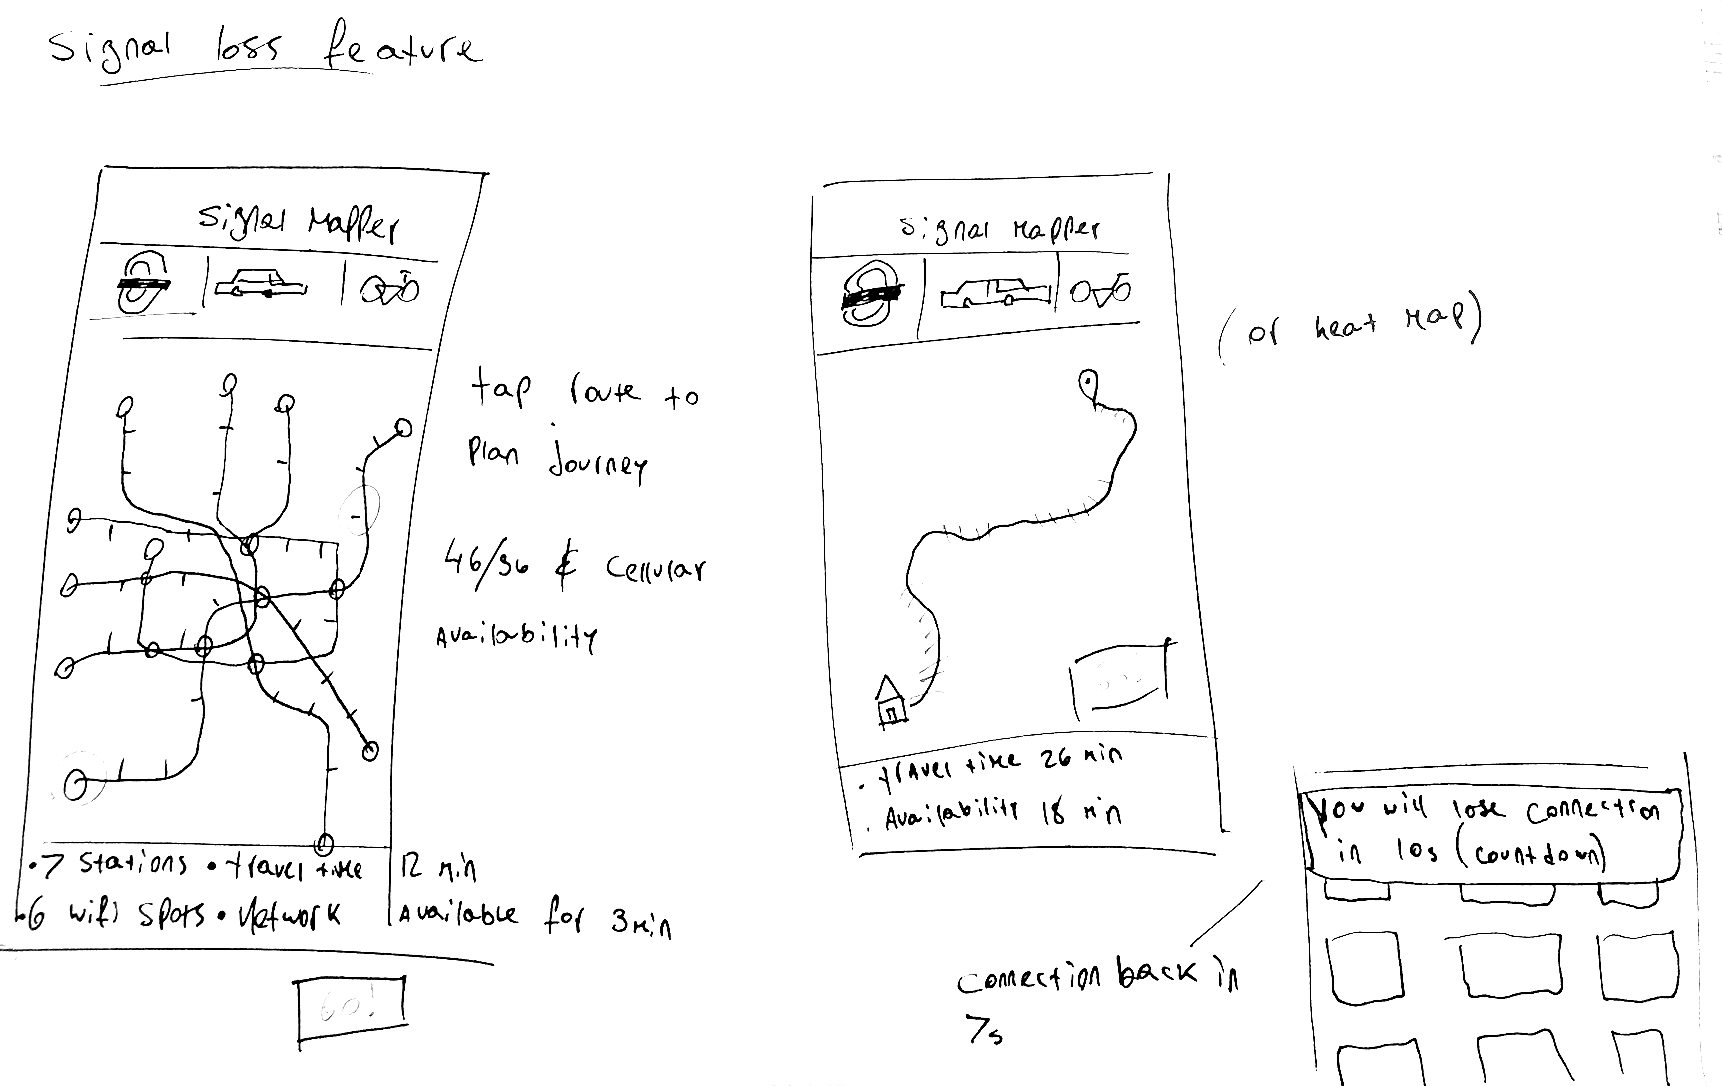 Signal loss feature
Signal Mapper
tap route to
plan journey
4G/3G & cellular
Availability
• 7 stations • travel time 12 min
• 6 wifi spots • Network Available for 3 min
GO!
Signal Mapper
(or heat map)
• travel time 26 min
• Availability 18 min
Connection back in
7s
You will lose connection
in 10s (countdown)